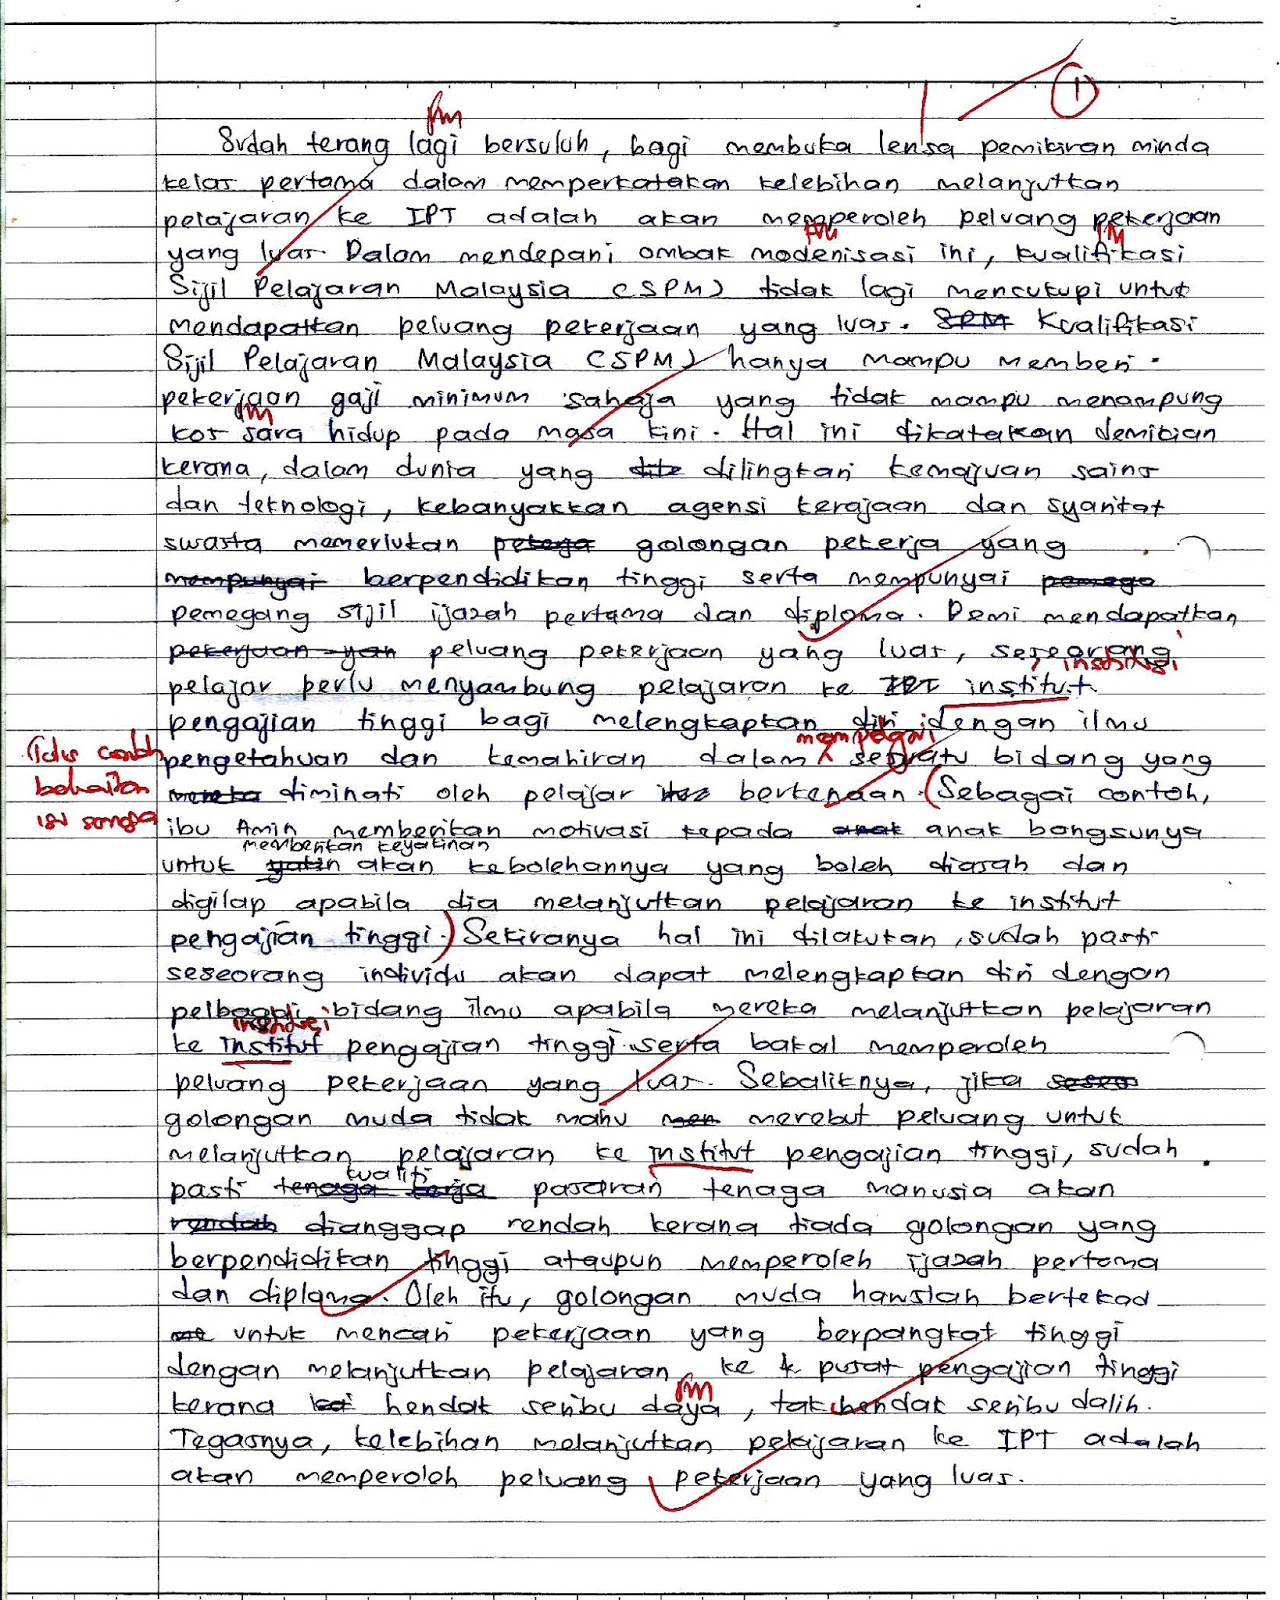 ①
fm
Sudah terang lagi bersuluh, bagi membuka lensa pemikiran minda
kelas pertama dalam memperkatakan kelebihan melanjutkan
pelajaran ke IPT adalah akan memperoleh peluang pekerjaan
yang luas. Dalam mendepani ombak modenisasi ini, kualifikasi
Sijil Pelajaran Malaysia (SPM) tidak lagi mencukupi untuk
mendapatkan peluang pekerjaan yang luas. SPM Kualifikasi
Sijil Pelajaran Malaysia (SPM) hanya mampu memberi
pekerjaan gaji minimum sahaja yang tidak mampu menampung
kos sara hidup pada masa kini. Hal ini dikatakan demikian
kerana, dalam dunia yang dilingkari kemajuan sains
dan teknologi, kebanyakkan agensi kerajaan dan syarikat
swasta memerlukan golongan pekerja yang
mempunyai berpendidikan tinggi serta mempunyai
pemegang sijil ijazah pertama dan diploma. Demi mendapatkan
pekerjaan yan peluang pekerjaan yang luas, seseorang
institusi
pelajar perlu menyambung pelajaran ke IPT institut
pengajian tinggi bagi melengkapkan diri dengan ilmu
mempelajari
pengetahuan dan kemahiran dalam sesuatu bidang yang
mereka diminati oleh pelajar berkenaan. (Sebagai contoh,
ibu Amin memberikan motivasi kepada anak anak bongsunya
memberikan keyakinan
untuk yakin akan kebolehannya yang boleh diasah dan
digilap apabila dia melanjutkan pelajaran ke institut
pengajian tinggi.) Sekiranya hal ini dilakukan, sudah pasti
seseorang individu akan dapat melengkapkan diri dengan
pelbagai bidang ilmu apabila mereka melanjutkan pelajaran
institusi
ke institut pengajian tinggi serta bakal memperoleh
peluang pekerjaan yang luas. Sebaliknya, jika
golongan muda tidak mahu men merebut peluang untuk
melanjutkan pelajaran ke institut pengajian tinggi, sudah
kualiti
pasti tenaga kerja pasaran tenaga manusia akan
rendah dianggap rendah kerana tiada golongan yang
berpendidikan tinggi ataupun memperoleh ijazah pertama
dan diploma. Oleh itu, golongan muda haruslah bertekad
untuk mencari pekerjaan yang berpangkat tinggi
dengan melanjutkan pelajaran ke pusat pengajian tinggi
fm
kerana hendak seribu daya, tak hendak seribu dalih.
Tegasnya, kelebihan melanjutkan pelajaran ke IPT adalah
akan memperoleh peluang pekerjaan yang luas.